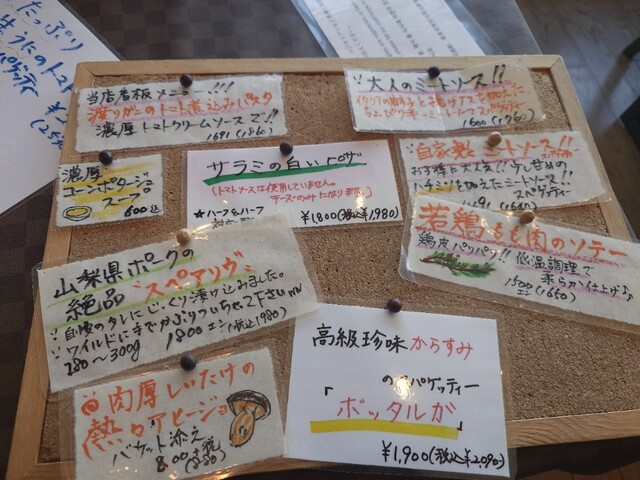 たっぷり
生うにのトマト
当店看板メニュー!!!
渡りガニのトマト煮込みパスタ
濃厚トマトクリームソースで!!
1691(1860)
大人のミートソース!!
スパゲッティー
1600(1760)
濃厚
コーンポタージュ
スープ
600込
サラミの白いピザ
(トマトソースは使用していません。
チーズのみになります。)
★ハーフ&ハーフ
¥1800(税込¥1,980)
自家製ミートソース!!
お子様に大人気!!
ハチミツを加えたミートソース
スパゲッティ
若鶏もも肉のソテー
鶏皮パリパリ!! 低温調理で
柔らかい仕上げ♪
1500エン(1650)
山梨県ポークの
絶品 "スペアリヴ"
自慢のタレにじっくり漬け込みました。
ワイルドに手でかぶりついちゃって下さい
280〜300g 1800エン(税込1980)
肉厚しいたけの
熱々アヒージョ
バケット添え
800+税
(880)
高級珍味からすみ
のスパゲッティー
「ボッタルガ」
¥1,900(税込¥2,090)